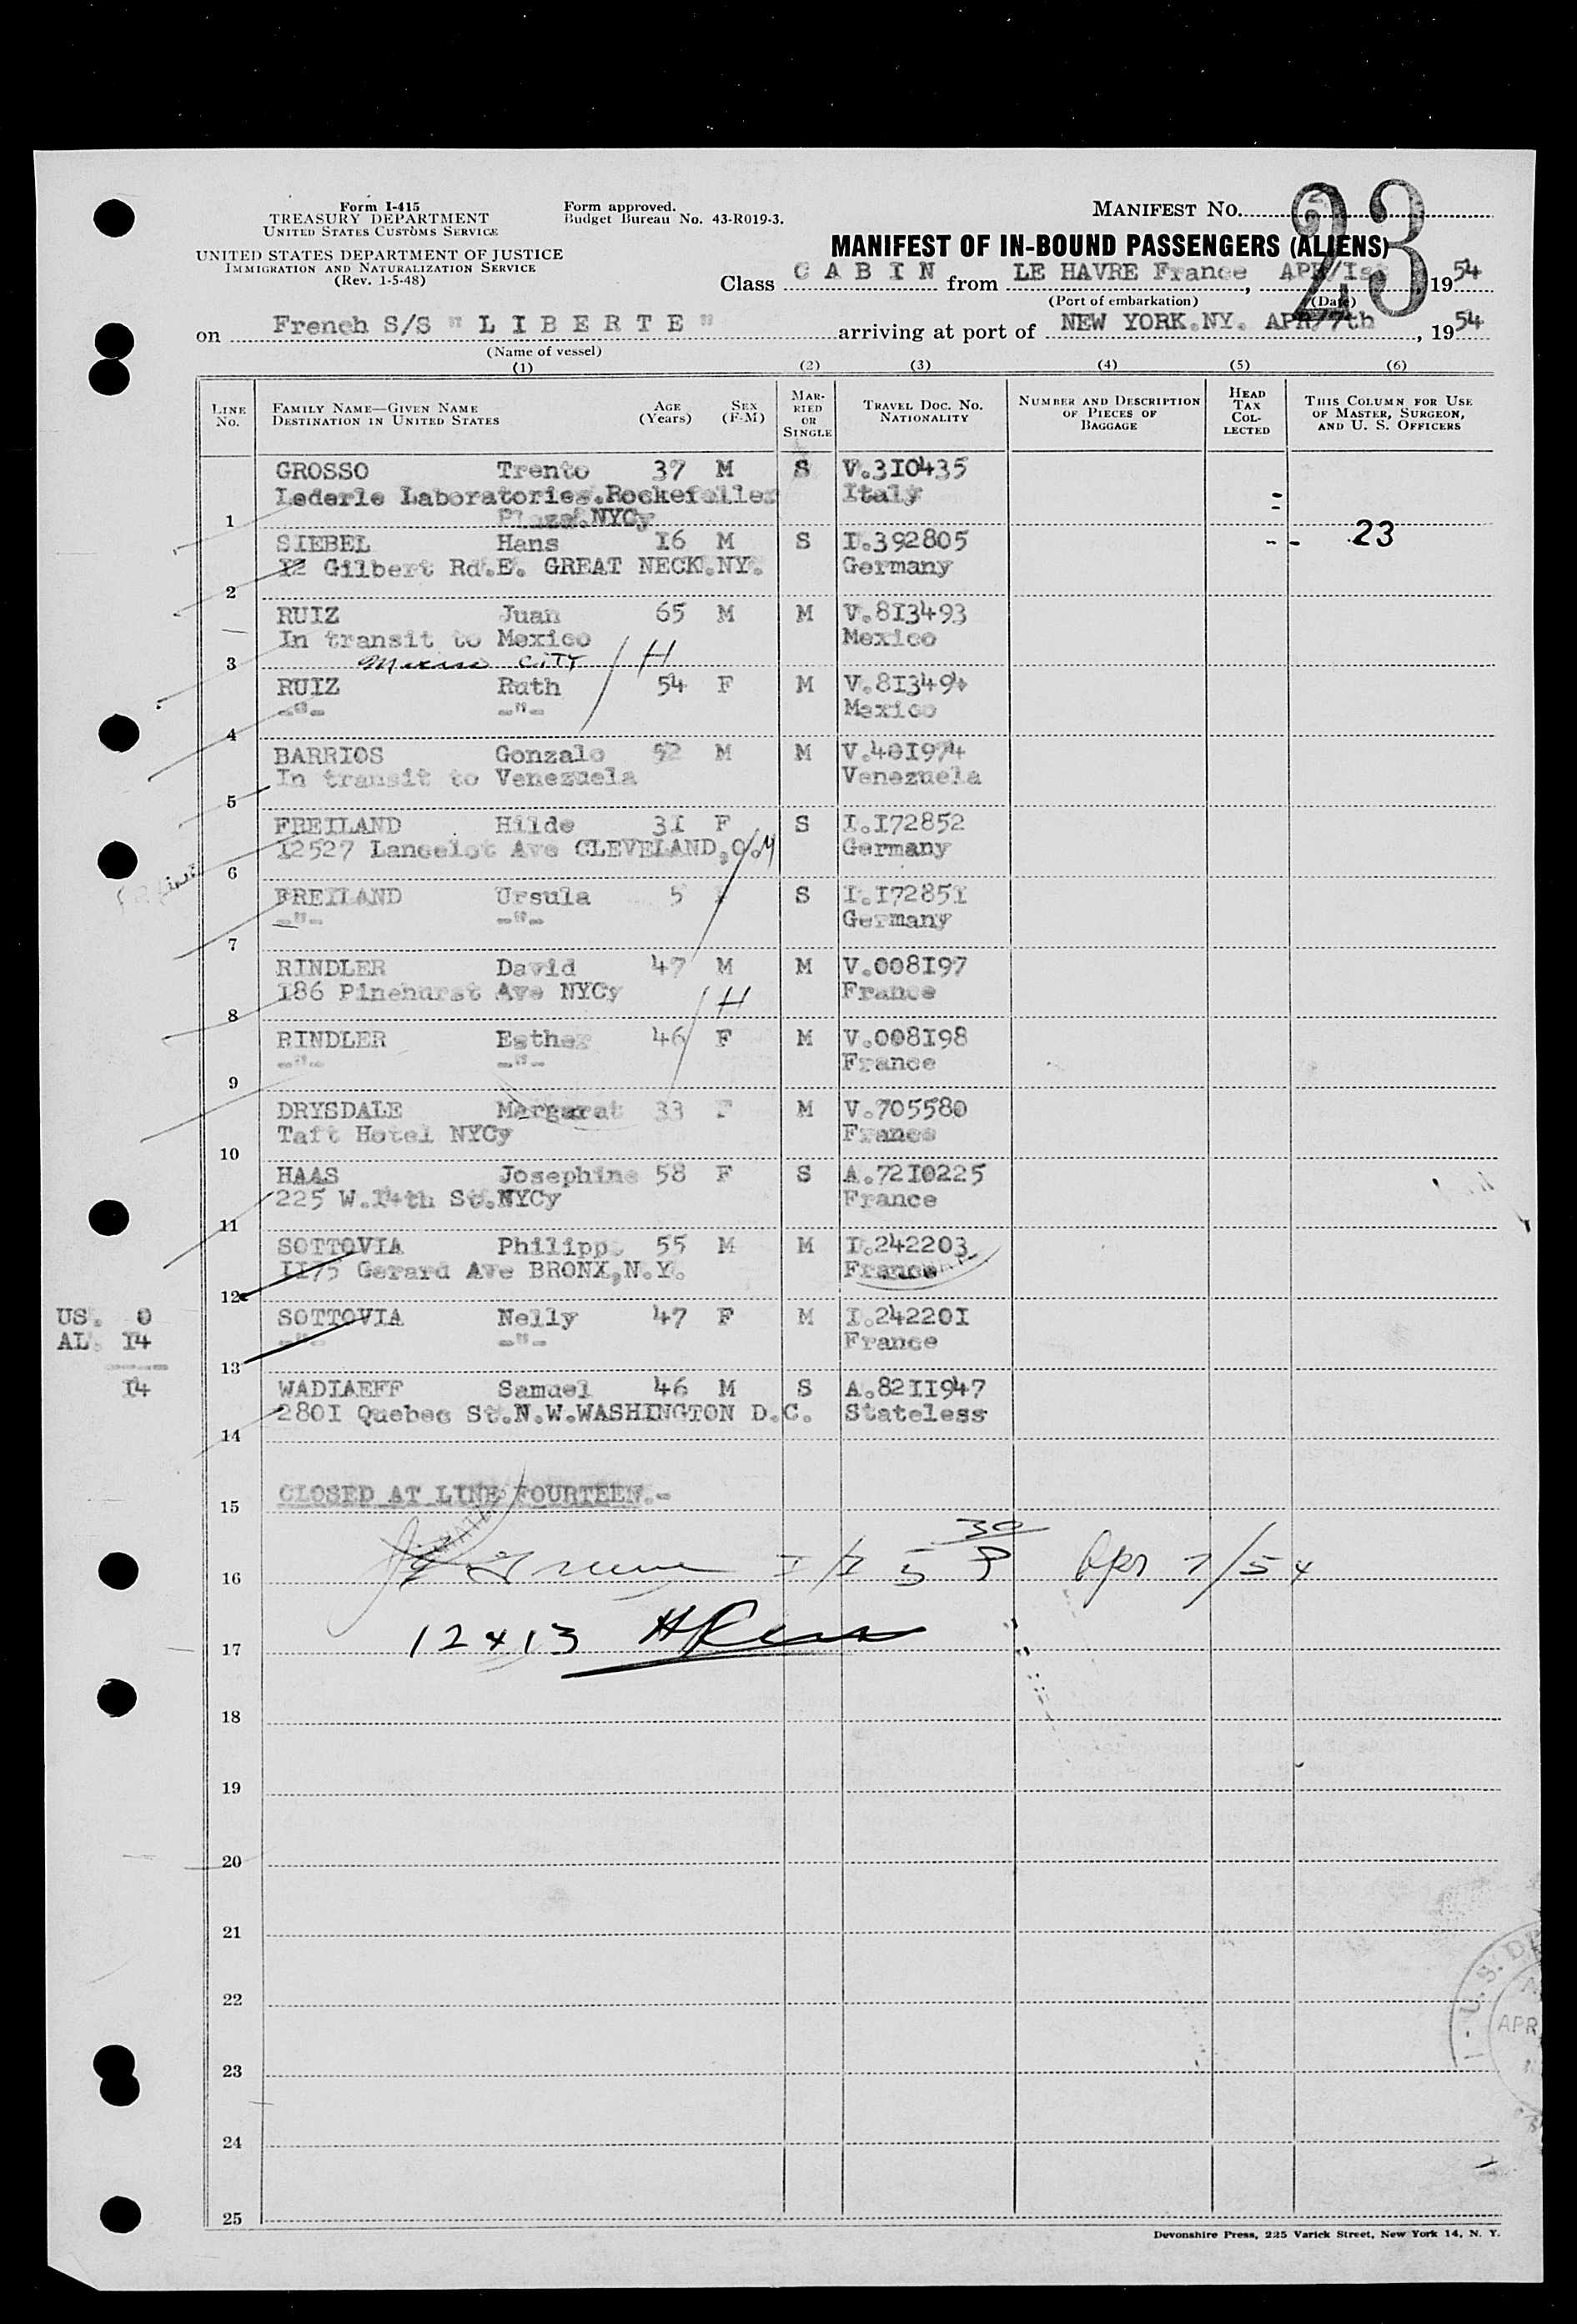 Form I-415
TREASURY DEPARTMENT
UNITED STATES CUSTOMS SERVICE
UNITED STATES DEPARTMENT OF JUSTICE
IMMIGRATION AND NATURALIZATION SERVICE
(Rev. 1-5-48)
Form approved.
Budget Bureau No. 43-R019-3.
MANIFEST NO. 23
MANIFEST OF IN-BOUND PASSENGERS (ALIENS)
Class C A B I N from LE HAVRE France, APR/Ist, 1954
(Port of embarkation) (Date)
on French S/S " L I B E R T E " arriving at port of NEW YORK.NY. APR/7th, 1954
(Name of vessel)
(1) (2) (3) (4) (5) (6)
LINE No. FAMILY NAME—GIVEN NAME DESTINATION IN UNITED STATES AGE (Years) SEX (F-M) MARRIED OR SINGLE TRAVEL DOC. NO. NATIONALITY NUMBER AND DESCRIPTION OF PIECES OF BAGGAGE HEAD TAX COLLECTED THIS COLUMN FOR USE OF MASTER, SURGEON, AND U. S. OFFICERS
GROSSO Trento 37 M S V.3I0435
Lederle Laboratories.Rockefeller Italy
1 Plaza.NYCy
SIEBEL Hans I6 M S I.392805 -- 23
I2 Gilbert Rd.E. GREAT NECK.NY. Germany
2
RUIZ Juan 65 M M V.8I3493
In transit to Mexico Mexico
3 Mexico CITY / H
RUIZ Ruth 54 F M V.8I3494
-"- -"- Mexico
4
BARRIOS Gonzalo 52 M M V.40I974
In transit to Venezuela Venezuela
5
FREILAND Hilde 3I F S I.I72852
I2527 Lancelot Ave CLEVELAND,O. Germany
6
FREILAND Ursula 5 F S I.I7285I
-"- -"- Germany
7
RINDLER David 47 M M V.008I97
I86 Pinehurst Ave NYCy France
8 / H
RINDLER Esther 46 F M V.008I98
-"- -"- France
9
DRYSDALE Margarat 33 F M V.705580
Taft Hotel NYCy France
10
HAAS Josephine 58 F S A.72I0225
225 W.I4th St.NYCy France
11
SOTTOVIA Philipp 55 M M I.242203
II75 Gerard Ave BRONX,N.Y. France
12
US. 0
SOTTOVIA Nelly 47 F M I.24220I
AL. I4
-"- -"- France
13
I4
WADIAEFF Samuel 46 M S A.82II947
280I Quebec St.N.W.WASHINGTON D.C. Stateless
14
CLOSED AT LINE FOURTEEN.-
15
16 I/I 5 30 P Apr 7/54
17 12413
18
19
20
21
22
23
24
25
U.S. DE
APR
Devonshire Press, 225 Varick Street, New York 14, N. Y.